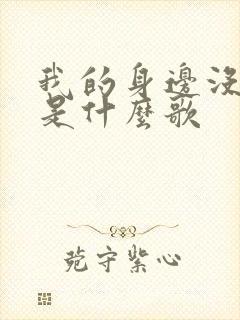 我的身邊沒
是什麼歌
苑守紫心